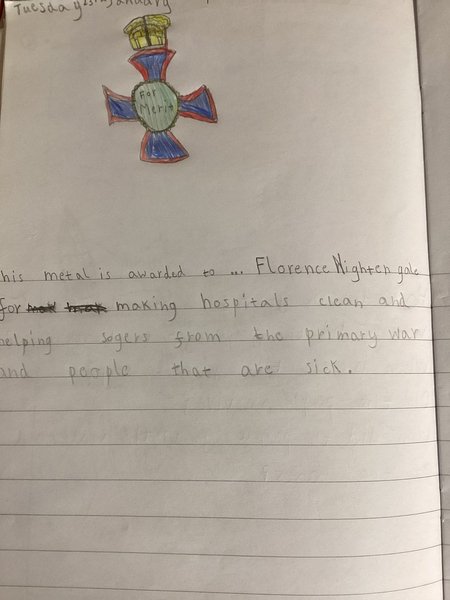 Tuesday January
For
Merit
his metal is awarded to ... Florence Nightengale
for making hospitals clean and
elping sogers from the primary war
and people that are sick.